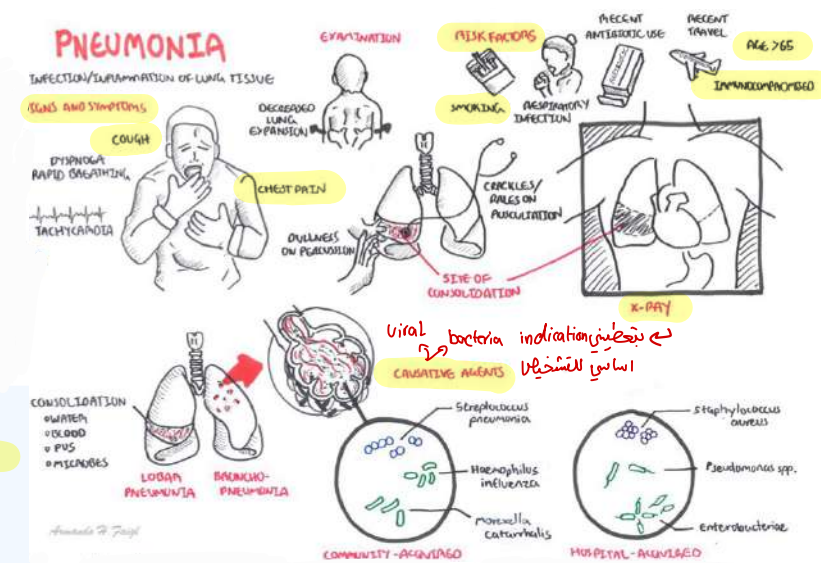 PNEUMONIA
INFECTION/INFLAMMATION OF LUNG TISSUE
SIGNS AND SYMPTOMS
COUGH
DYSPNOEA
RAPID BREATHING
CHEST PAIN
TACHYCARDIA
EXAMINATION
DECREASED
LUNG
EXPANSION
DULLNESS
ON PERCUSSION
CRACKLES/
RALES ON
AUSCULTATION
SITE OF
CONSOLIDATION
RISK FACTORS
SMOKING
RESPIRATORY
INFECTION
RECENT
ANTIBIOTIC USE
RECENT
TRAVEL
AGE >65
IMMUNOCOMPROMISED
X-RAY
viral bacteria indication بتعطيني
اساسي للتشخيص
CAUSATIVE AGENTS
CONSOLIDATION
WATER
BLOOD
PUS
MICROBES
LOBAR
PNEUMONIA
BRONCHO-
PNEUMONIA
Streptococcus
pneumonia
Haemophilus
influenza
Moraxella
catarrhalis
COMMUNITY-ACQUIRED
Staphylococcus
aureus
Pseudomonas spp.
Enterobacteriae
HOSPITAL-ACQUIRED
Armando H.